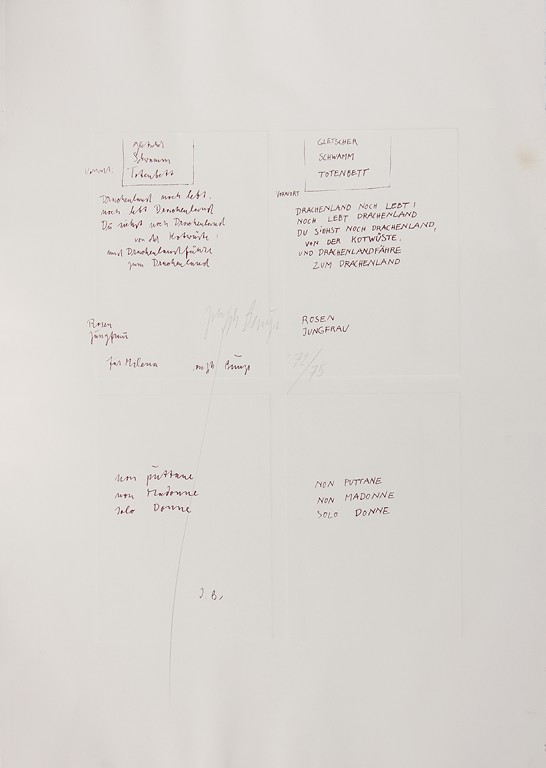 Gletscher
Schwamm
Totenbett
Vorwort:
Drachenland noch lebt,
noch lebt Drachenland
Du siehst noch Drachenland
von der Kotwüste,
und Drachenlandfähre
zum Drachenland
Rosen
Jungfrau
für Milena Joseph Beuys
non puttane
non Madonne
solo Donne
J. B.
GLETSCHER
SCHWAMM
TOTENBETT
VORWORT
DRACHENLAND NOCH LEBT!
NOCH LEBT DRACHENLAND
DU SIEHST NOCH DRACHENLAND,
VON DER KOTWÜSTE,
UND DRACHENLANDFÄHRE
ZUM DRACHENLAND
ROSEN
JUNGFRAU
NON PUTTANE
NON MADONNE
SOLO DONNE
Joseph Beuys
/75